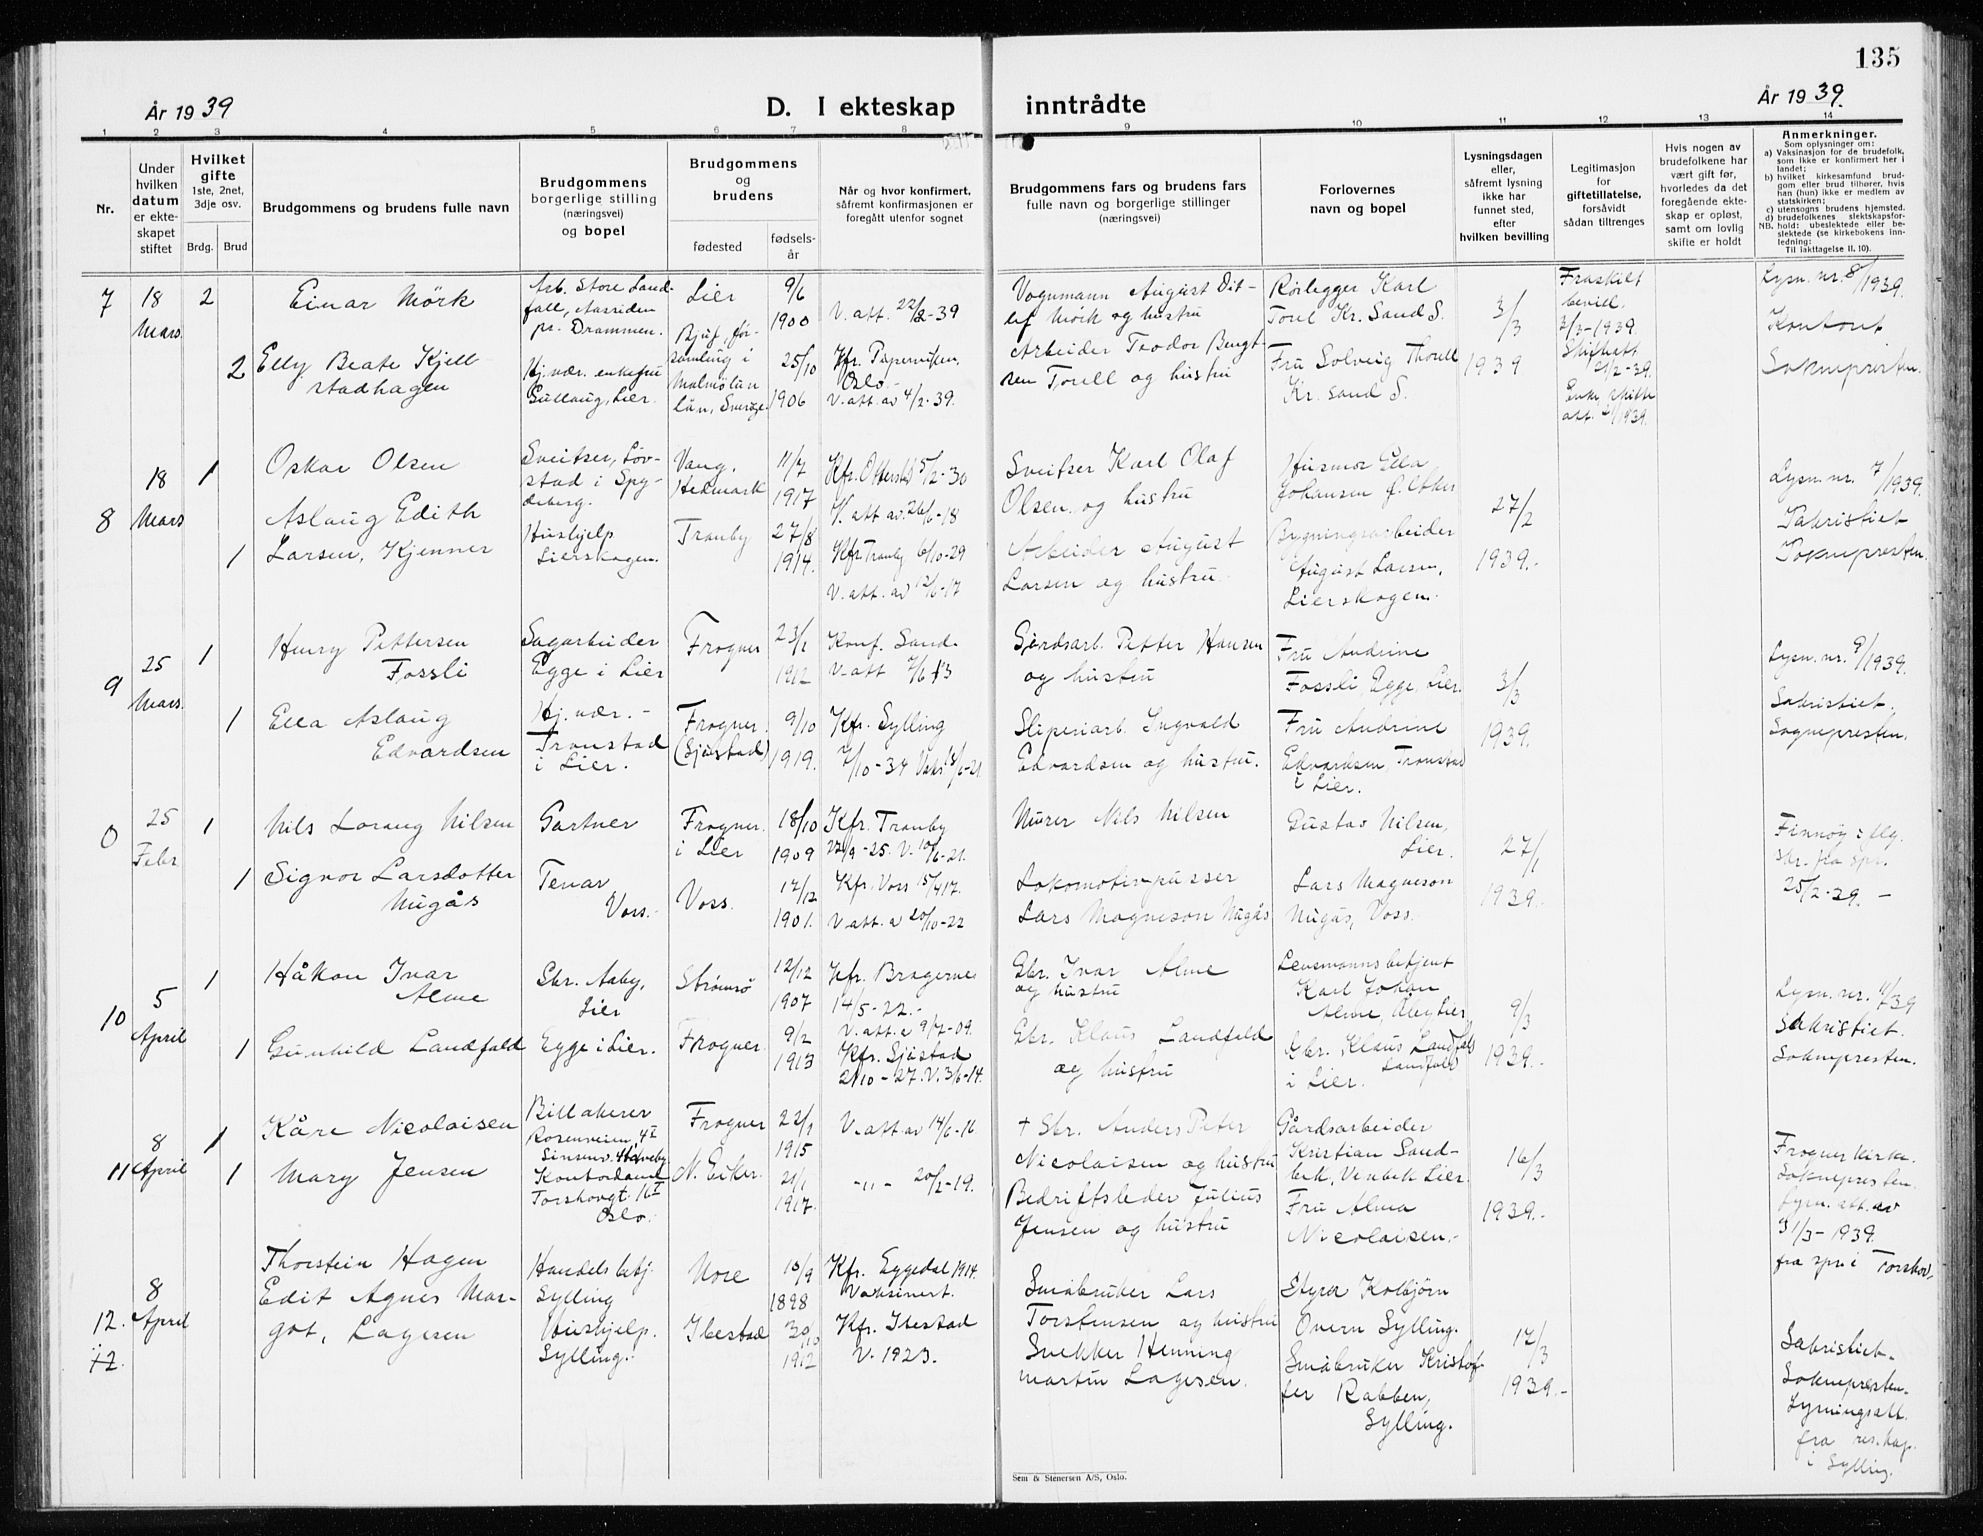 135
År 1939
D. I ekteskap inntrådte
År 1939.
1 2 3 4 5 6 7 8 9 10 11 12 13 14
Nr.
Under hvilken datum er ekteskapet stiftet
Hvilket gifte
1ste, 2net, 3dje osv.
Brdg. Brud
Brudgommens og brudens fulle navn
Brudgommens borgerlige stilling (næringsvei) og bopel
Brudgommens og brudens
fødested
fødselsår
Når og hvor konfirmert, såfremt konfirmasjonen er foregått utenfor sognet
Brudgommens fars og brudens fars fulle navn og borgerlige stillinger (næringsvei)
Forlovernes navn og bopel
Lysningsdagen eller, såfremt lysning ikke har funnet sted, efter hvilken bevilling
Legitimasjon for giftetillatelse, forsåvidt sådan tiltrenges
Hvis nogen av brudefolkene har vært gift før, hvorledes da det foregående ekteskap er opløst, samt om lovlig skifte er holdt
Anmerkninger.
Som oplysning om:
a) Vaksinasjon for de brudefolk, som ikke er konfirmert her i landet;
b) hvilket kirkesamfund brudgom eller brud tilhører, hvis han (hun) ikke er medlem av statskirken;
c) utensogns brudens hjemsted.
d) brudefolkenes slektskapsforhold: ubeslektede eller beslektede (se kirkebokens innledning:
NB. Til iakttagelse II. 10).
7
18
Mars
2
Einar Mörk
Arb. Store Land-
fall, Aassiden
pr. Drammen.
Lier
9/6
1900
V. att. 22/2-39
Vognmann August Dit-
lef Mörk og hustru
Rörlegger Karl
Torel Kr. Sand S.
3/3
1939
Fraskilt
bevill.
2/3-1939.
Lysn. nr. 8/1939.
Kontort
Soknepresten.
2
Elly Beate Kjell
stadhagen
Hj. vær. enkefru
Gullaug, Lier.
Bjuf, för-
samling i
Malmöhus
län, Sverige.
25/10
1906
Kfr. Papervi
Oslo.-
V. att. av 4/2-39.
Arbeider Teodor Bengt-
sen Torell og hustru
Fru Solveig Thorell
Kr. sand S.
Skifteatt.
21/2-39.
Enke, skifte
att. 2/1939.
8
18
Mars
1
Oskar Olsen
Sveitser, Löv-
stad i Spy-
deberg.
Vang,
Hedmark
11/7
1917
Kfr. Otterstad 5/2-30
V. att av. 26/6-18
Sveitser Karl Olaf
Olsen og hustru
Husmor Ella
Johansen
27/2
1939.-
Lysn. nr. 7/1939.
Sakristiet
Soknepresten.
1
Aslaug Edith
Larsen, Kjenner
Hushjelp
Lierskogen.
Tranby
27/8
1914.
Kfr. Tranby 6/10-29
V. att. av 12/6-17
Arbeider August
Larsen og hustru.
Bygningsarbeider
August Larsen,
Lierskogen.
9
25
Mars
1
Henry Pettersen
Fossli
Sagarbeider
Egge i Lier
Frogner
23/1
1912
Konf. Sand.
V. att 7/6 13
Gårdsarb. Petter Hansen
og hustru
Fru Andrine
Fossli, Egge, Lier.
3/3
1939.
Lysn. nr. 9/1939.
Sakristiet.
Sognepresten.
1
Ella Aslaug
Edvardsen
Hj. vær. -
Tronstad
i Lier.
Frogner
(Sjåstad)
9/10
1919.
Kfr. Sylling
7/10-34 Vaks 13/6-21
Sliperiarb. Ingvald
Edvardsen og hustru.
Fru Andrine
Edvardsen, Tronstad
i Lier.
0
25
Febr
1
Nils Lorang Nilsen
Gartner
Frogner.
i Lier
18/10
1909
Kfr. Tranby
27/9-25. V. 10/6-21.
Murer Nils Nilsen
Gustav Nilsen,
Lier.
27/1
1939.-
Finnöy i flg.
skr. fra spr.
25/2-39. -
1
Signor Larsdotter
Nugås
Tenar
Voss.-
Voss.
17/12
1901.
Kfr. Voss 15/4 17.
V. att. a 20/10-22
Lokomotivpusser
Lars Magneson Nugås
Lars Magneson
Nugås, Voss.
10
5
April
1
Håkon Ivar
Alme
Gbr. Aaby,
Lier
Strömsö
12/12
1907
Kfr. Bragernes
14/5-22.-
V. att. a 9/7-09.
Gbr. Ivar Alme
og hustru
Lensmannsbetjent
Karl Johan
Alme, Åby Lier,
9/3
1939.-
Lysn. nr. 11/39
Sakristiet.
Soknepresten.
1
Gunhild Landfald
Egge i Lier.
Frogner.
9/2
1913
Kfr. Sjåstad
2/10-27. V. 3/6-14.
Gbr. Klaus Landfald
og hustru
Gbr. Klaus Landfald
Landfald
i Lier.
11
8
April
1
Kåre Nicolaisen
Billakerer
Rosenveien, 4 I
Frogner
22/1
1915
V. att av 14/6-16.
+ Gbr. Anders Peter
Nicolaisen og hustru
Gårdsarbeider
Kristian Sand-
bek, Venbek Lier.
16/3
1939.-
Frogner kirke.
Soknepresten.
Lysn. att. av
31/3-1939.
fra spr i Torshov.
1
Mary Jensen
Kontordame
Torshovgt. 16 I
Oslo.
N. Eiker.
21/1
1917.
-"- 20/2-19.
Bedriftsleder Julius
Jensen og hustru
Fru Alma
Nicolaisen.-
12.
12
8
April
Thorstein Hagen
Handelsbetj.
Sylling
Nore
10/9
1898
Kfr. Eggedal 1914.
Vaksinert.
Småbruker Lars
Torstensen og hustru
Styra Kolbjörn
Overn Sylling.
17/3
1939.-
Sakristiet.
Soknepresten.
Lysningsatt.
fra res. kap.
i Sylling.
Edit Agnes Mar-
got, Lagesen
Hushjelp.
Sylling.
Ibestad
30/10
1912
Kfr. Ibestad
V. 1923.
Snekker Henning
Martin Lagesen.
Småbruker Kristof-
fer Rabben,
Sylling.
Sem & Stenersen A/S, Oslo.